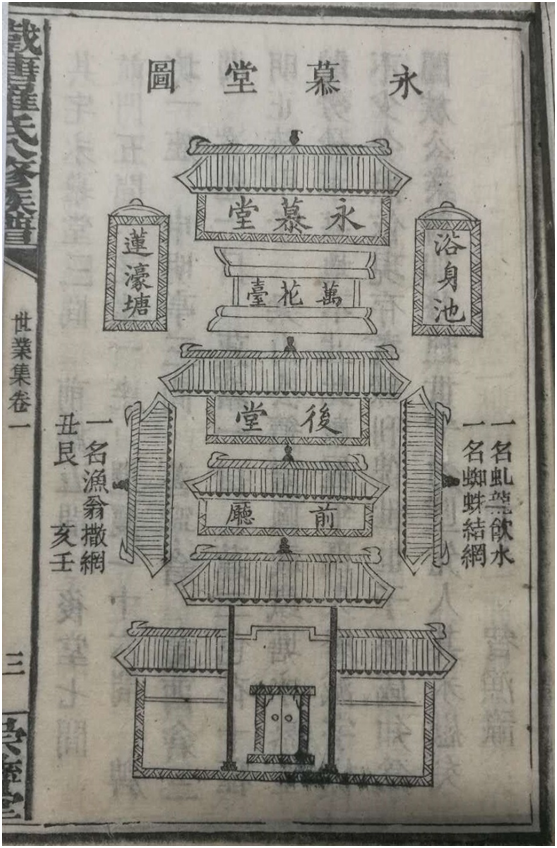 永慕堂圖
永慕堂
浴身池
萬花臺
蓮濠塘
後堂
前廳
一名虬龍飲水
一名蜘蛛結網
一名漁翁撒網
丑艮 亥壬
塘羅氏八修族譜
世業集卷一
三